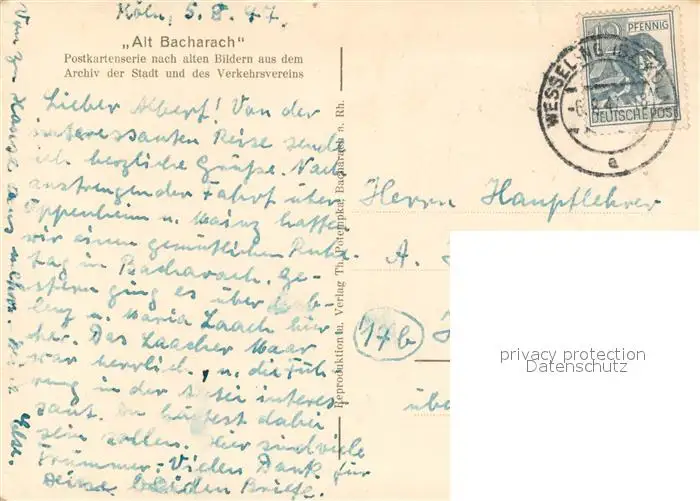 Köln, 5.8.47.
„Alt Bacharach"
Postkartenserie nach alten Bildern aus dem
Archiv der Stadt und des Verkehrsvereins
Lieber Albert! Von der
interessanten Reise sende
ich herzliche Grüße. Nach
anstrengender Fahrt über
Oppenheim u. Mainz hatten
wir einen gemütlichen Ruhe-
tag in Bacharach. Ge-
stern ging es über Kob-
lenz u. Maria Laach hier
her. Das Laacher Maar
war herrlich, u. die Füh-
rung in der Abtei interes-
sant. Du hättest dabei
sein sollen. Hier sind viele
Trümmer. Vielen Dank für
Deine beiden Briefe.
Von zu Hause aus mehr.
Else.
Reproduktion u. Verlag Th. Potempka, Bacharach a. Rh.
12 PFENNIG
DEUTSCHE POST
WESSELING
a
Herrn Hauptlehrer
A.
17b
übe
privacy protection
Datenschutz